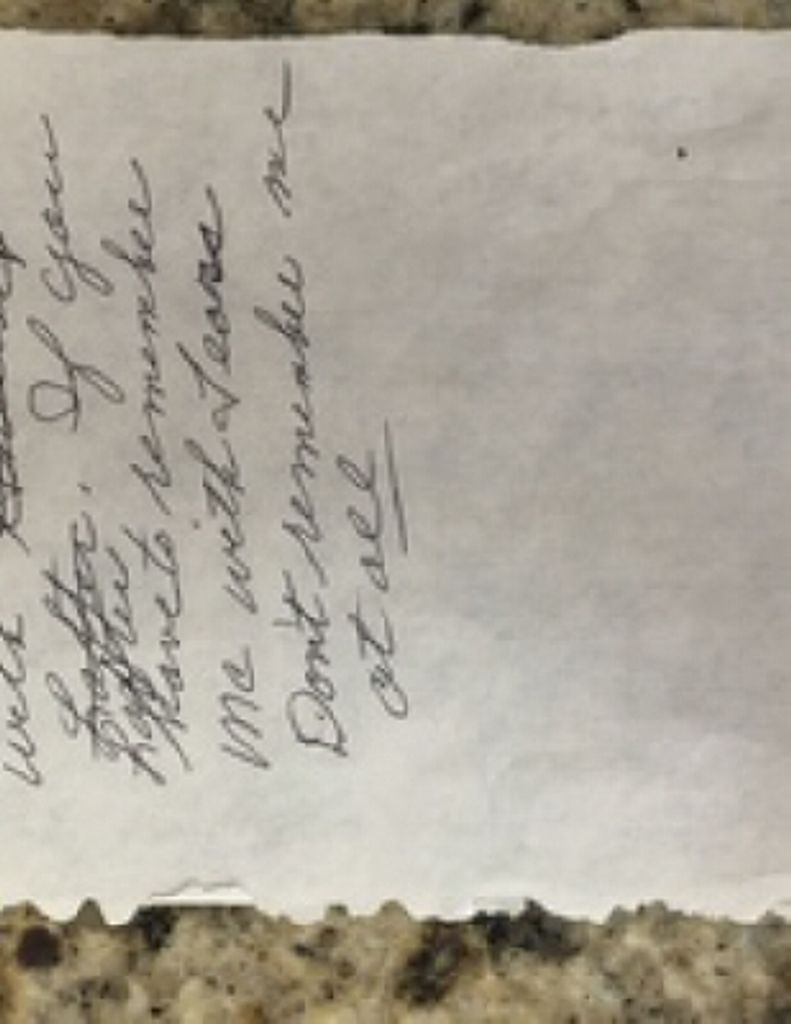 with
Lafter. If you
have to remember
me with Tears
Don't remember me
at all